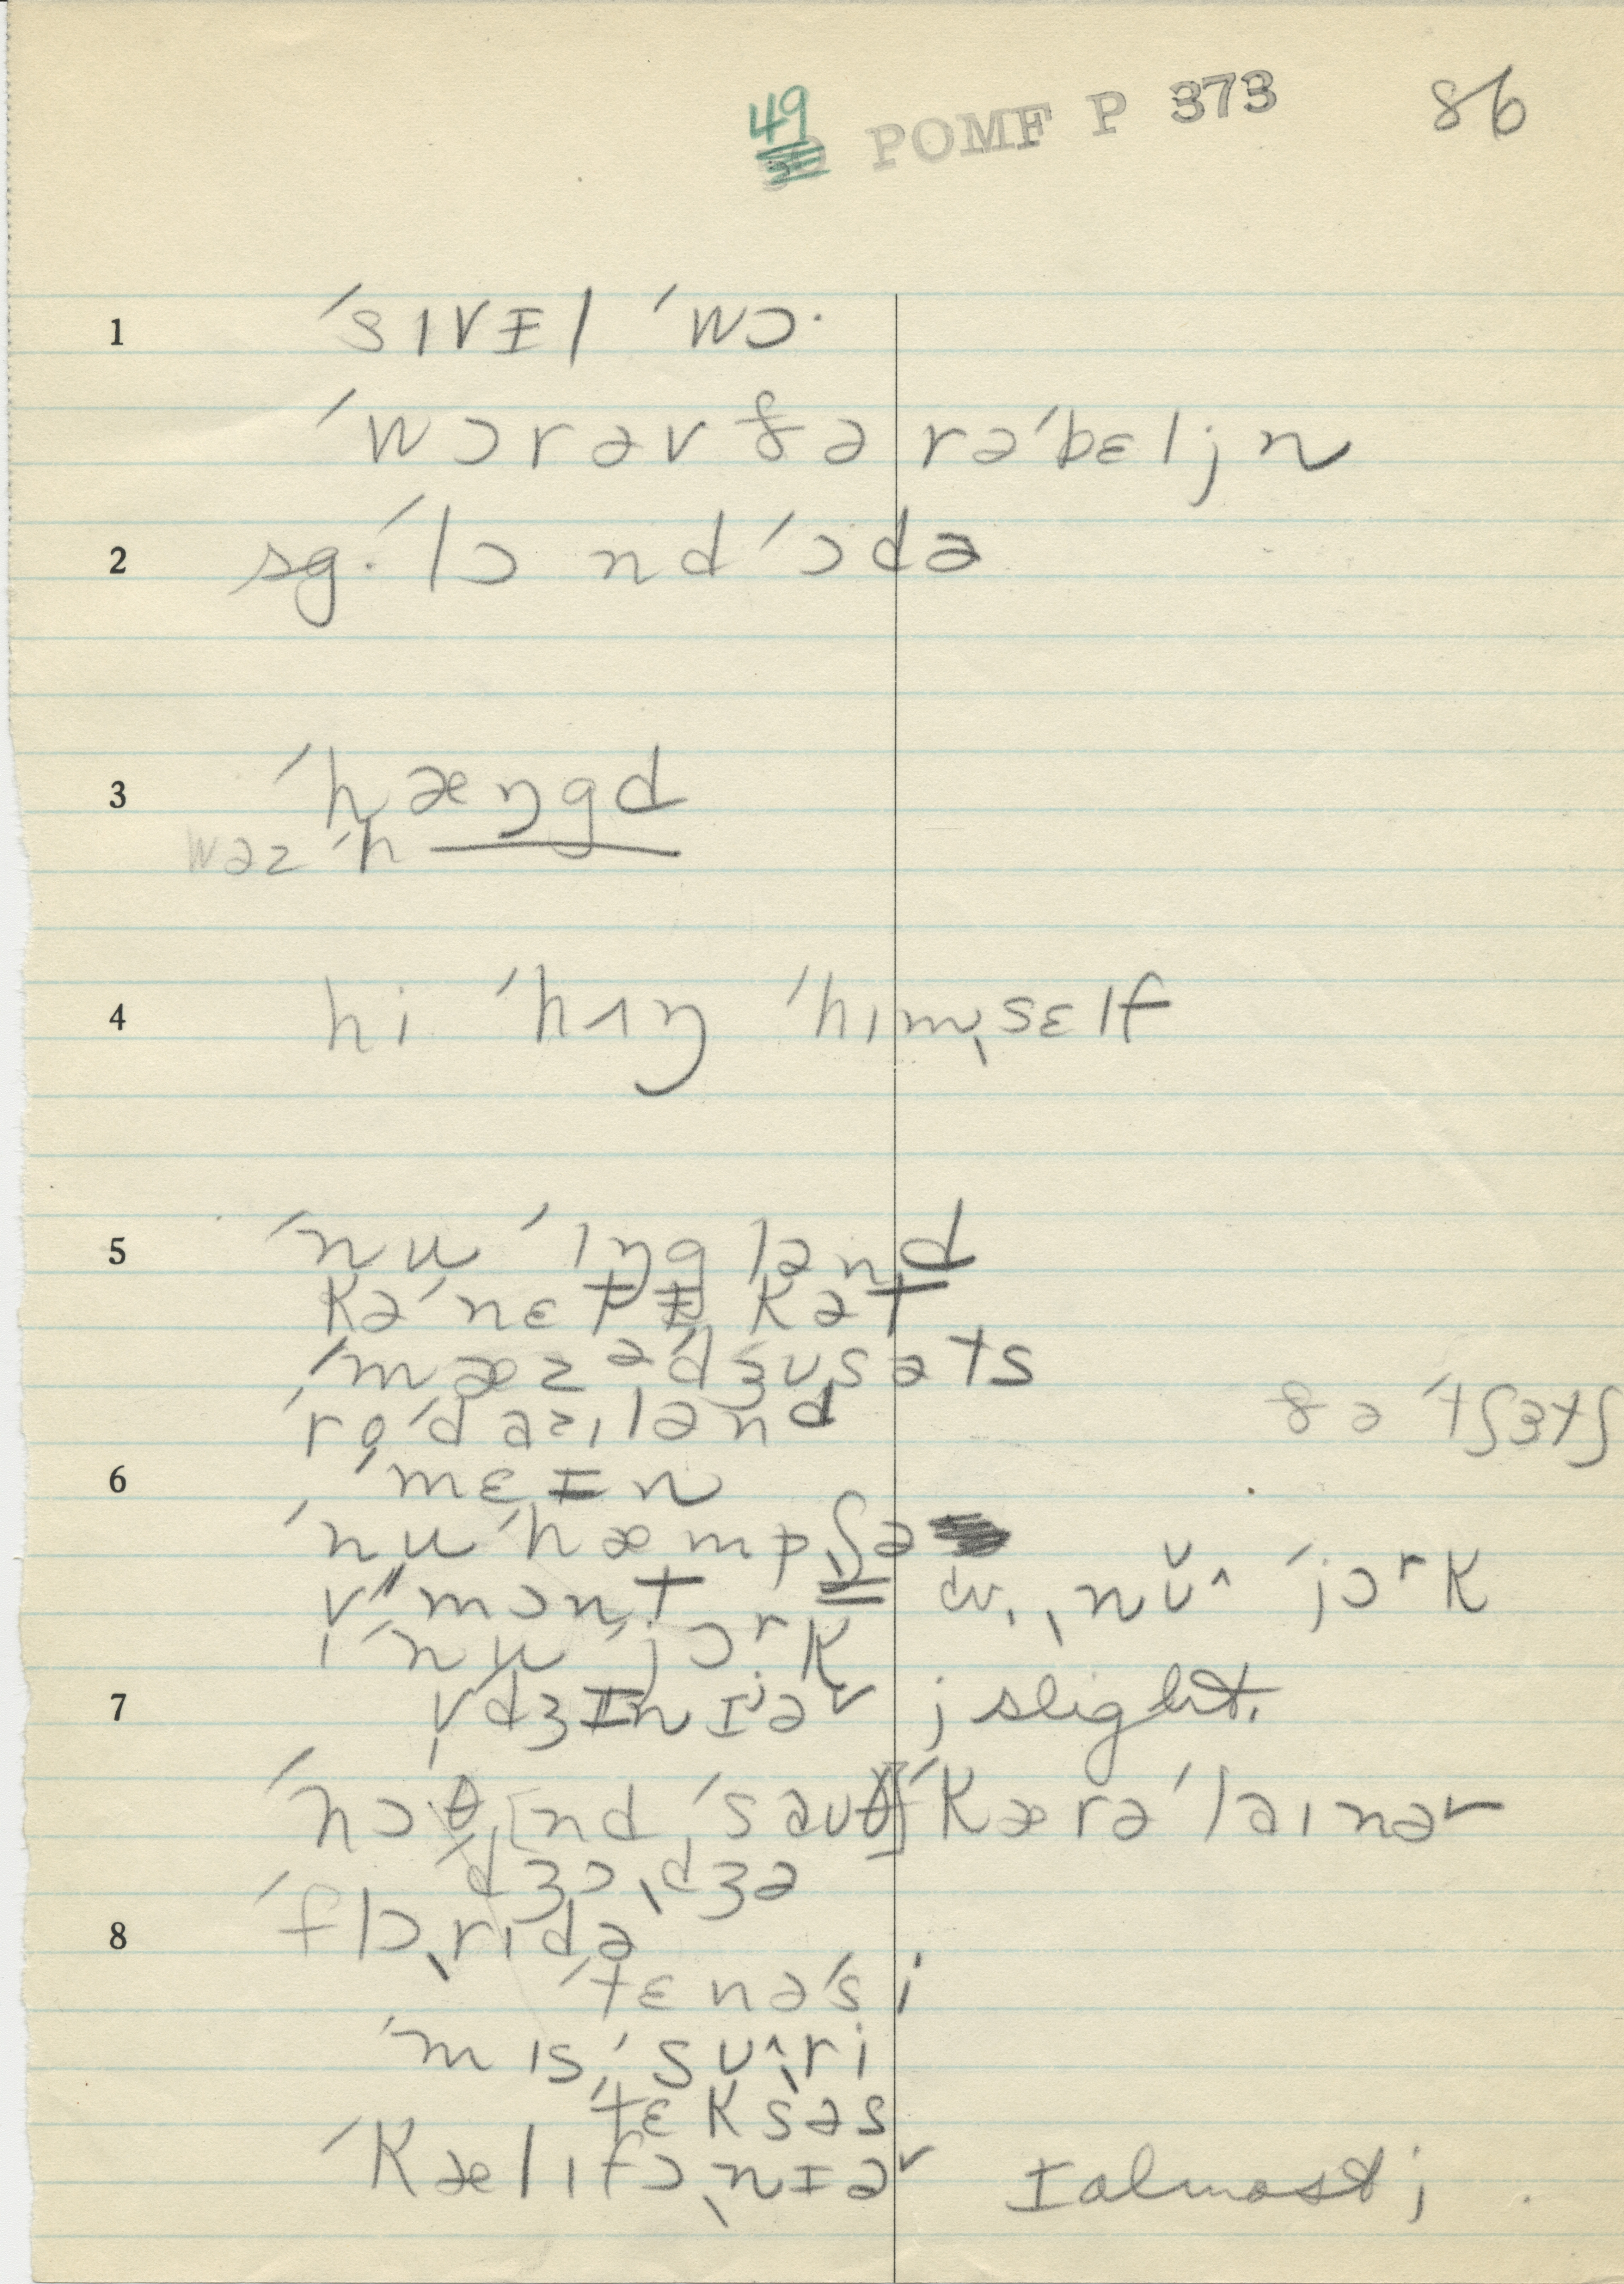 49
POMF P 373
86
1 ˈsɪvɪ̵l ˈwɔ·
ˈwɔrəv ðə rəˈbɛljn
2 sg. ˈlɔnd ˈɔdə
3 ˈhæŋgd
wəz ˈh
4 hi ˈhʌŋ ˈhɪmˌsɛlf
5 ˈnu ˈɪŋglənd
kəˈnɛtɪ̵kət
ˈmæzəˈdʒusəts
ˈroˈdaɪˌlənd ðə ˈtʃɛtʃ
6 ˈmɛɪ̵n
ˈnu ˈhæmpʃə
vˈˈmɔnt dr. ˌnŭ^ ˈjɔʳk
ˈnu ˈjɔʳk
7 vˌdʒɪ̵nɪʲəʳ j slight.
ˈnɔθ [nd ˈsauθ] ˈkærəˈlaɪnər
ˈdʒɔˌdʒə
8 ˈflɔˌrɪdə
ˈtɛnəˈsi
ˈmɪsˌˈsu^ˌri
ˈtɛksəs
ˈkælɪfɔˌnɪəʳ ɪ almost j